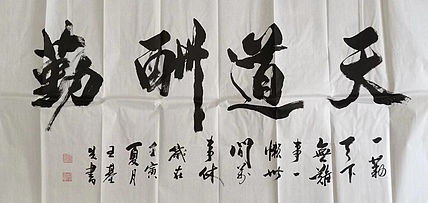 天道酬勤
一勤
天下
無難
事一
懶世
間萬
事休
歲在
壬寅
夏月
王基
書